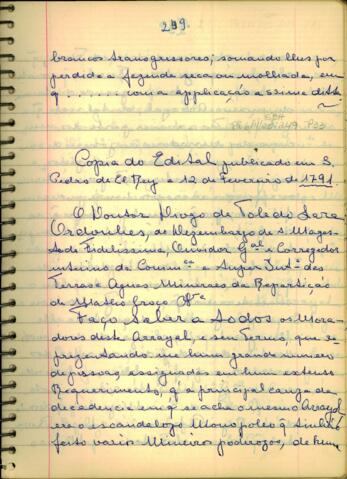 249.
brancos transgressores; tomando lhes por
perdida a fazenda seca ou molhada, em
q ...... com a applicação assima dita.
Copia do Edital publicado em S.
Pedro de El Rey a 12 de Fevereiro de 1791.
O Doutor Diogo de Toledo Lara
Ordonhes, do Dezembargo de S. Mages-
tade Fidelissima, Ouvidor Gal e Corregedor
interino da Comarca e Super Inte das
Terras e Aguas Mineraes da Repartição
do Matto Groço &
Faço Saber a todos os Mora-
dores deste Arrayal, e seu Termo, que re-
prezentando me hum grande numero
de pessoas, assignadas em hum extenso
Requerimento, q' a principal cauza da
decadencia em q' se acha o mesmo Arrayal
era o escandalozo Monopoleo q' tinhão
feito varios Mineiros poderozos, de hum